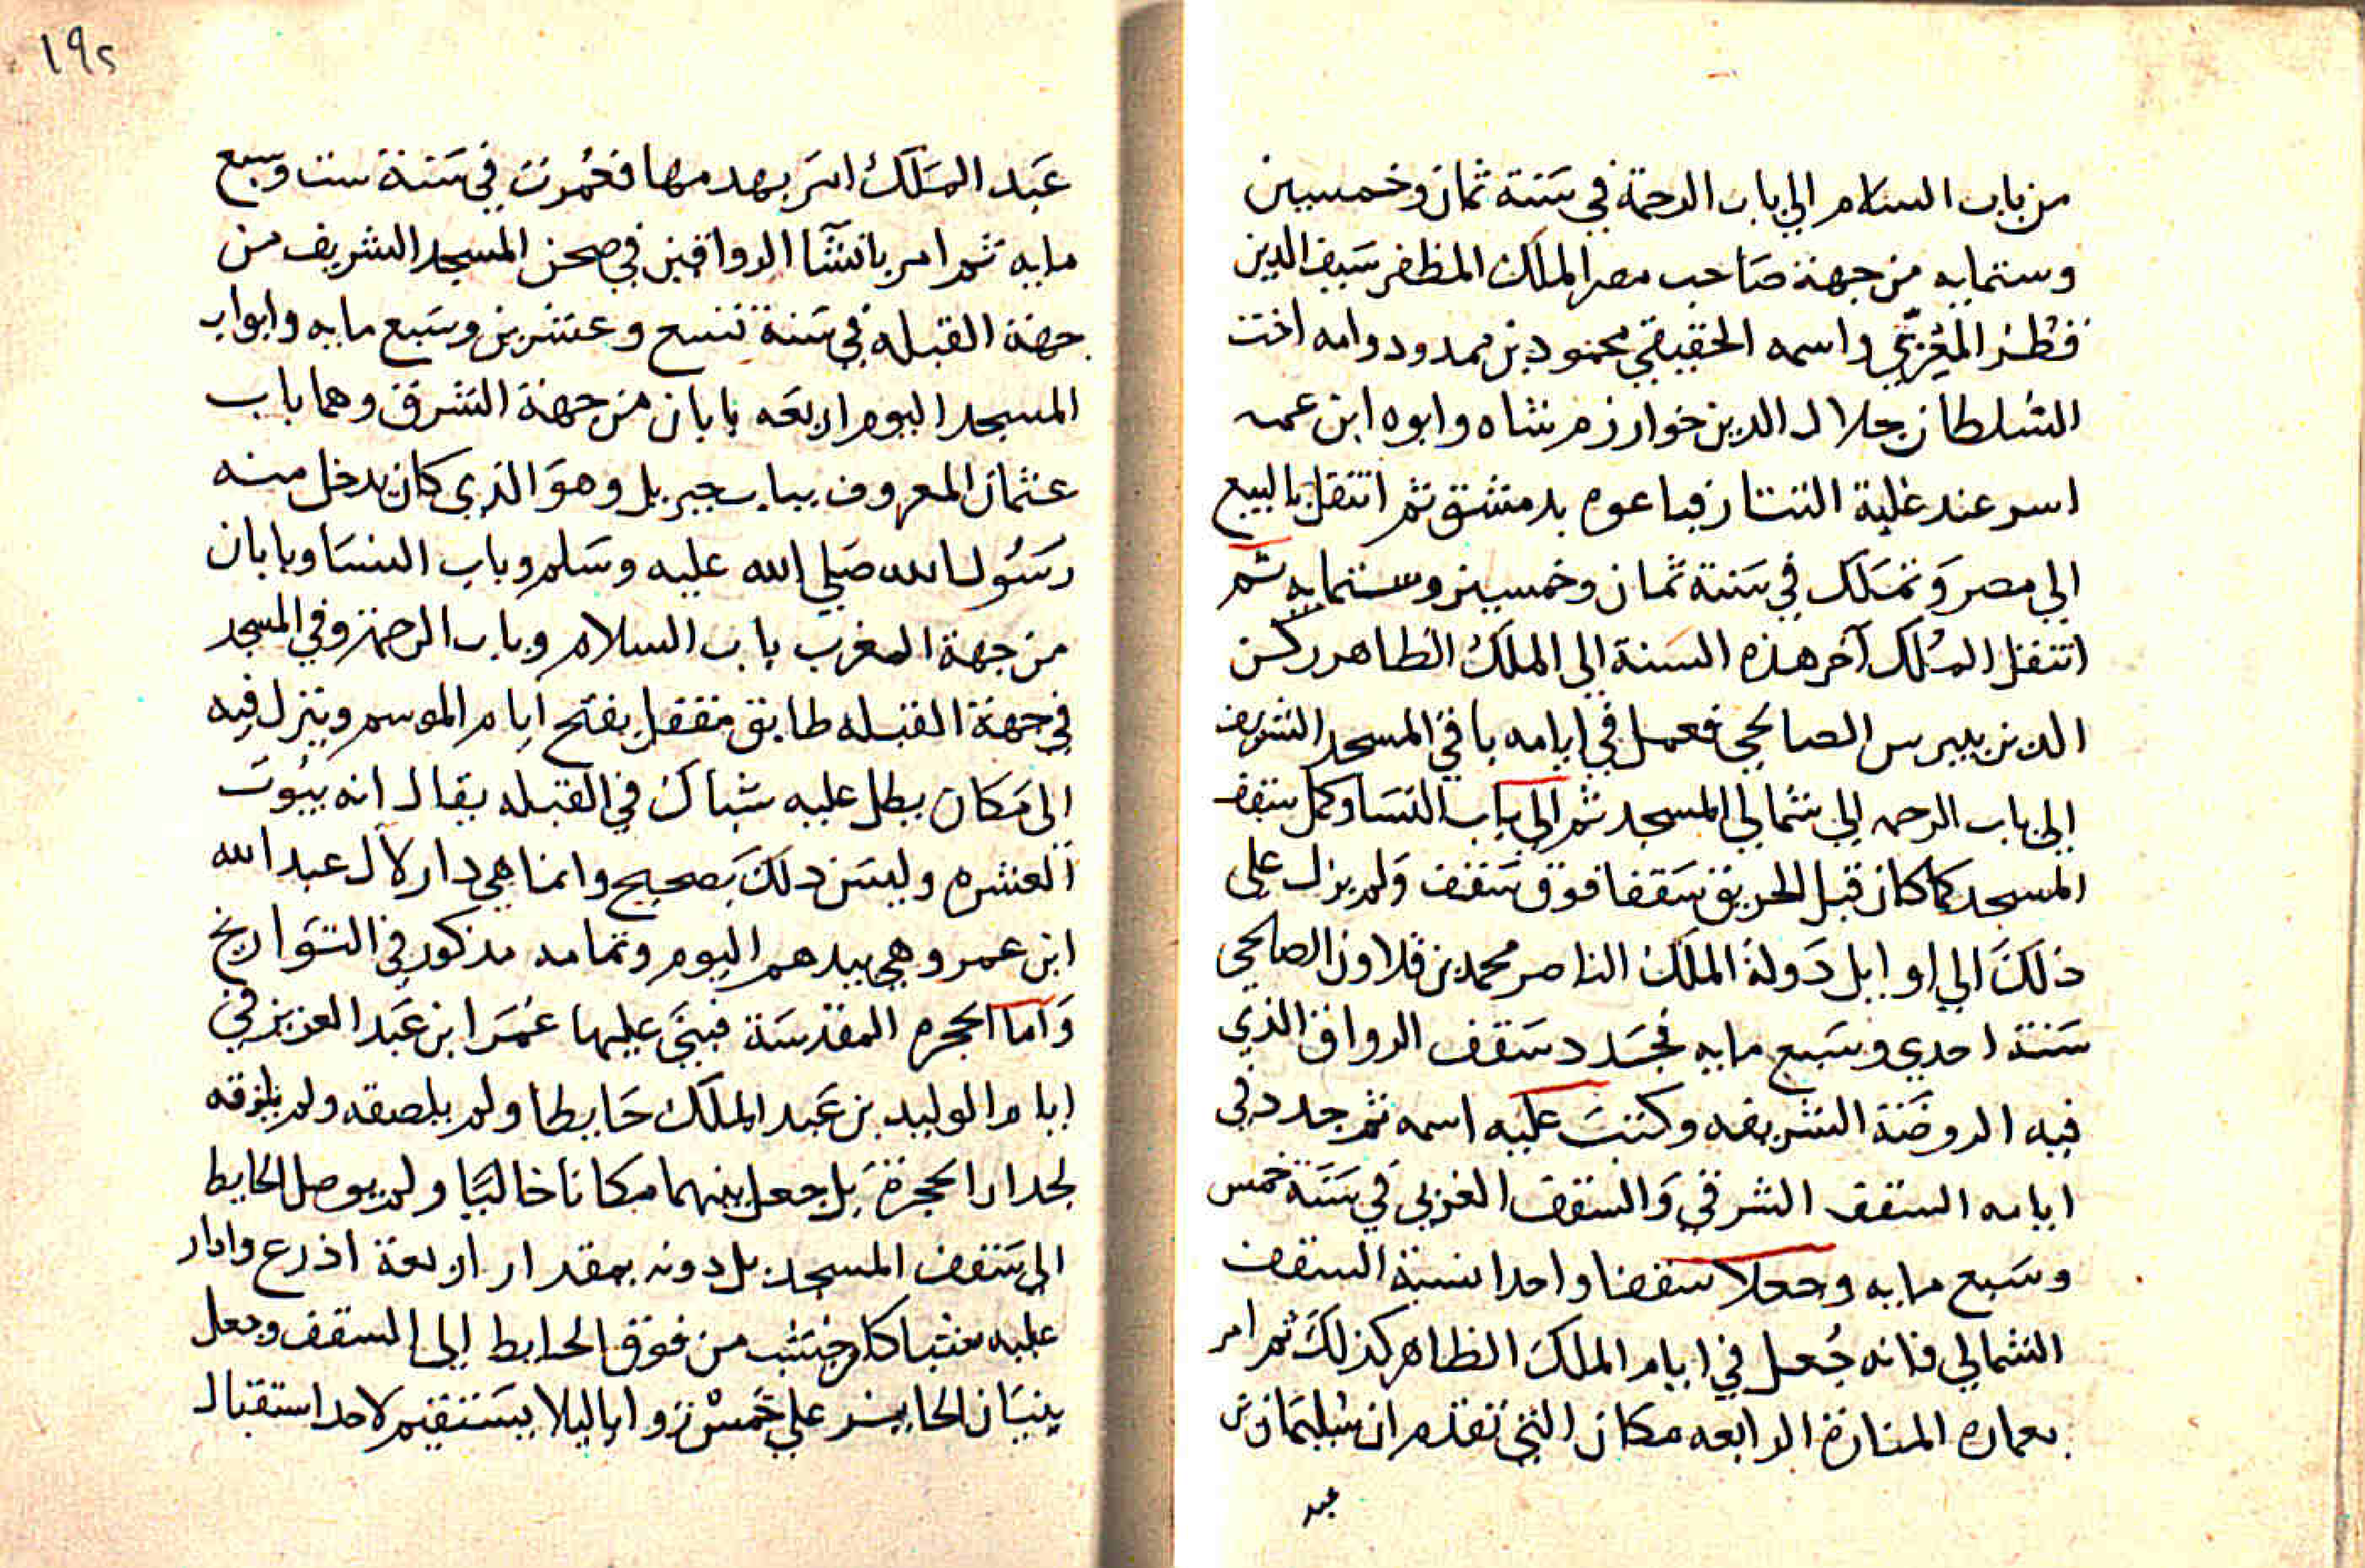 من باب السلام الي باب الرحمة في سَنة ثمان وخمسين
وستمايه من جهة صَاحب مصر الملك المظفر سَيف الدين
قطز المُعزّي واسمه الحقيقي محمود بن ممدود وامه اخت
السُلطان جلال الدين خوارزم شاه وابوه ابن عمه
اسر عند غلبة التتار فباعوه بدمشق ثم انتقل بالبيع
الي مصر وَتمَلك في سَنة ثمان وخمسين وستمايه ثم
انتقل المُلك آخر هذه السَنة الي الملك الظاهر ركن
الدين بيبرس الصالحي فعمل في ايامه باقي المسجد الشريف
الي باب الرحمه الي شمالي المسجد ثم الي باب النسَا وكمل سقف
المسجد كما كان قبل الحريق سَقفا فوق سَقف وَلم يزل علي
ذلكَ الي اوايل دَولة الملَك الناصر محمد بن قلاون الصالحي
سَنة احدي وسَبع مايه فجَدد سَقف الرواق الذي
فيه الروضَة الشريفه وكتبَ عَليه اسمه ثم جدد في
ايامه السقف الشرقي وَالسقف الغربي في سَنة خمس
وسَبع مايه وجعلا سقفا واحدا نسبة السقف
الشمالي فانه جُعل في ايام الملكَ الظاهر كذلكَ ثم امر
بعماره المنارة الرابعه مكان التي تقدم ان سُليمَان بن
عبد
١٩٢
عَبد المَلكْ امَر بهدمها فعُمرت في سَنة ست وسبع
مايه ثم امر بانشآ الرواقين في صحن المسجد الشريف من
جهة القبله في سَنة تسع وعشرين وسَبع مايه وابواب
المسجد اليوم اربعَه بابان من جهة الشرق وهما باب
عثمان المعروف بباب جبريل وهوَ الذي كان يدخل منه
رسَوُل الله صَلي الله عليه وسَلم وباب النسَا وبابان
من جهة المغرب باب السلام وباب الرحمة وفي المسجد
في جهة القبله طابق مقفل يفتح ايام الموسم وينزل فيه
الي مَكان يطل عليه شباك في القبله يقال انه بيُوت
العشره وليسَ ذلكَ بَصحيح وانما هي دار لآل عبد الله
ابن عمر وهي بيدهم اليوم وتمامه مذكور في التوَاريخ
وَاما الحجره المقدسَة فبنيَ عليها عُمَر ابن عَبد العزيز في
ايام الوليد بن عَبد الملَك حَايطا ولم يلصقه ولم يلزقه
لجدار الحجرة بَل جعل بينهما مكانا خاليًا ولم يوصل الحايط
الي سَقف المسجد بل دونه بمقدار اربعة اذرع وادار
عليه شباكا من خشب من فوق الحايط الي السقف وجعل
بنيَان الحايز علي خَمسْ زوايا ليلا يسَتقيم لاحد استقبال